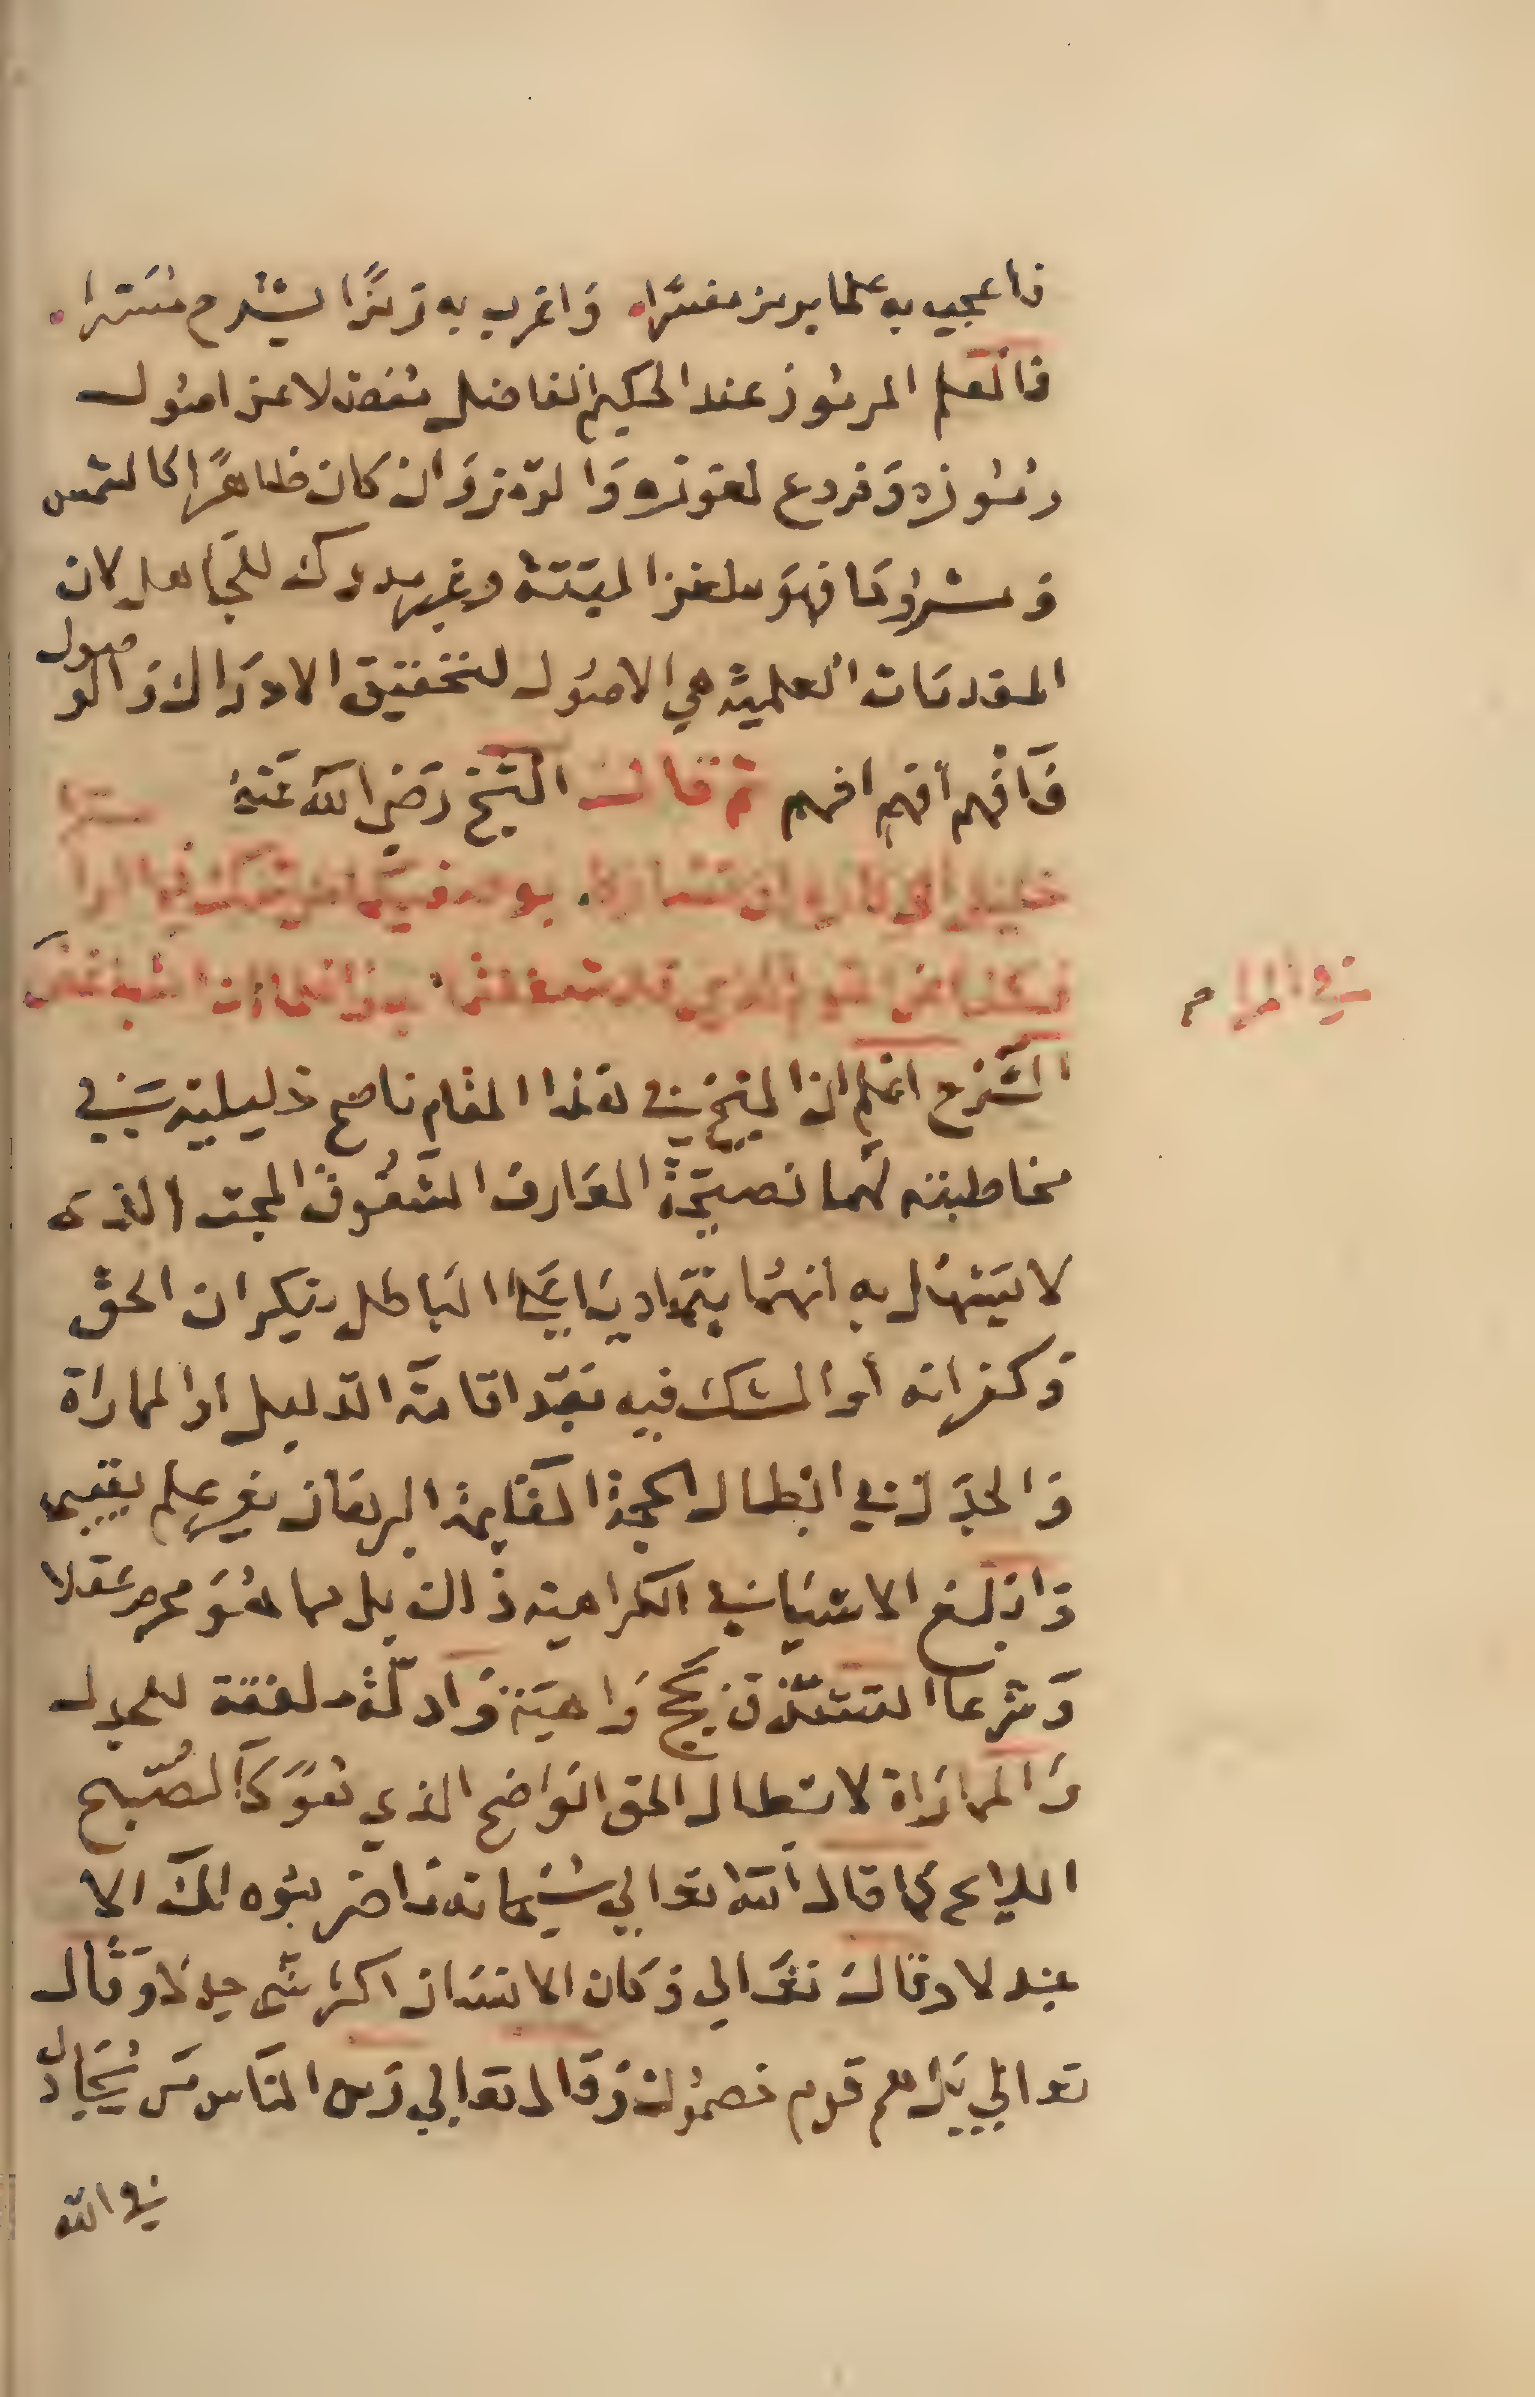 فاعجب به علما برمز مفسرا وَاغرب به رَمزًا بشرح مُسَترا
فالعلم المرمُوز عند الحكيم الفاضل مفصلا عن اصُول
رمُوزه وَفروع لغوزه وَالرمز وَان كان ظاهرًا كالشمس
وَمشروحًا فهوَ ملغز البتة وغير مدرك للجَاهل لان
المقدمَات العلمية هي الاصُول لتحقيق الادرَاك وَالوصول
فَافهم أفهم افهم ثم قال الشيخ رَضي الله عَنهُ
خليلي
في المرا م
الشَرح اعلم ان الشيخ في هَذا المقَام ناصح خليليه في
مخاطبته لهما نصيحَة العَارف الشفُوق المحب الذي
لا يَتهم به انهمَا يتمَاديَا عَلى البَاطل بنكران الحق
وَكفرانه أو الشك فيه بَعد اقامَة الدليل او المماراة
وَالجدَل في ابطال الحجة القايمَة البرهَان بغير علم يقيني
وَابلغ الاشيَا في الكراهية ذَالك بل مما هُوَ محرم عَقلا
وَشرعا التشدق بحجج وَاهيَة وَادلّة ملفقة للجدل
وَالممارَاة لابطال الحق الوَاضح الذي هُوَ كَالصُبح
اللايح كمَا قال الله تعالي سُبحَانه مَا ضربُوه لكَ الا
جدلا وقال تعَالي وَكان الانسَان اكثر شَي جدلا وَقال
تعالي بَل هم قوم خصمُون وَقَال تعَالي وَمن النَاس مَن يُجَادل
في الله